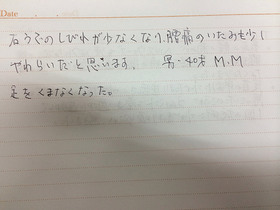 Date
右うでのしびれが少なくなり、腰痛のいたみも少し
やわらいだと思います。 男・40才 M.M
足をくまなくなった。